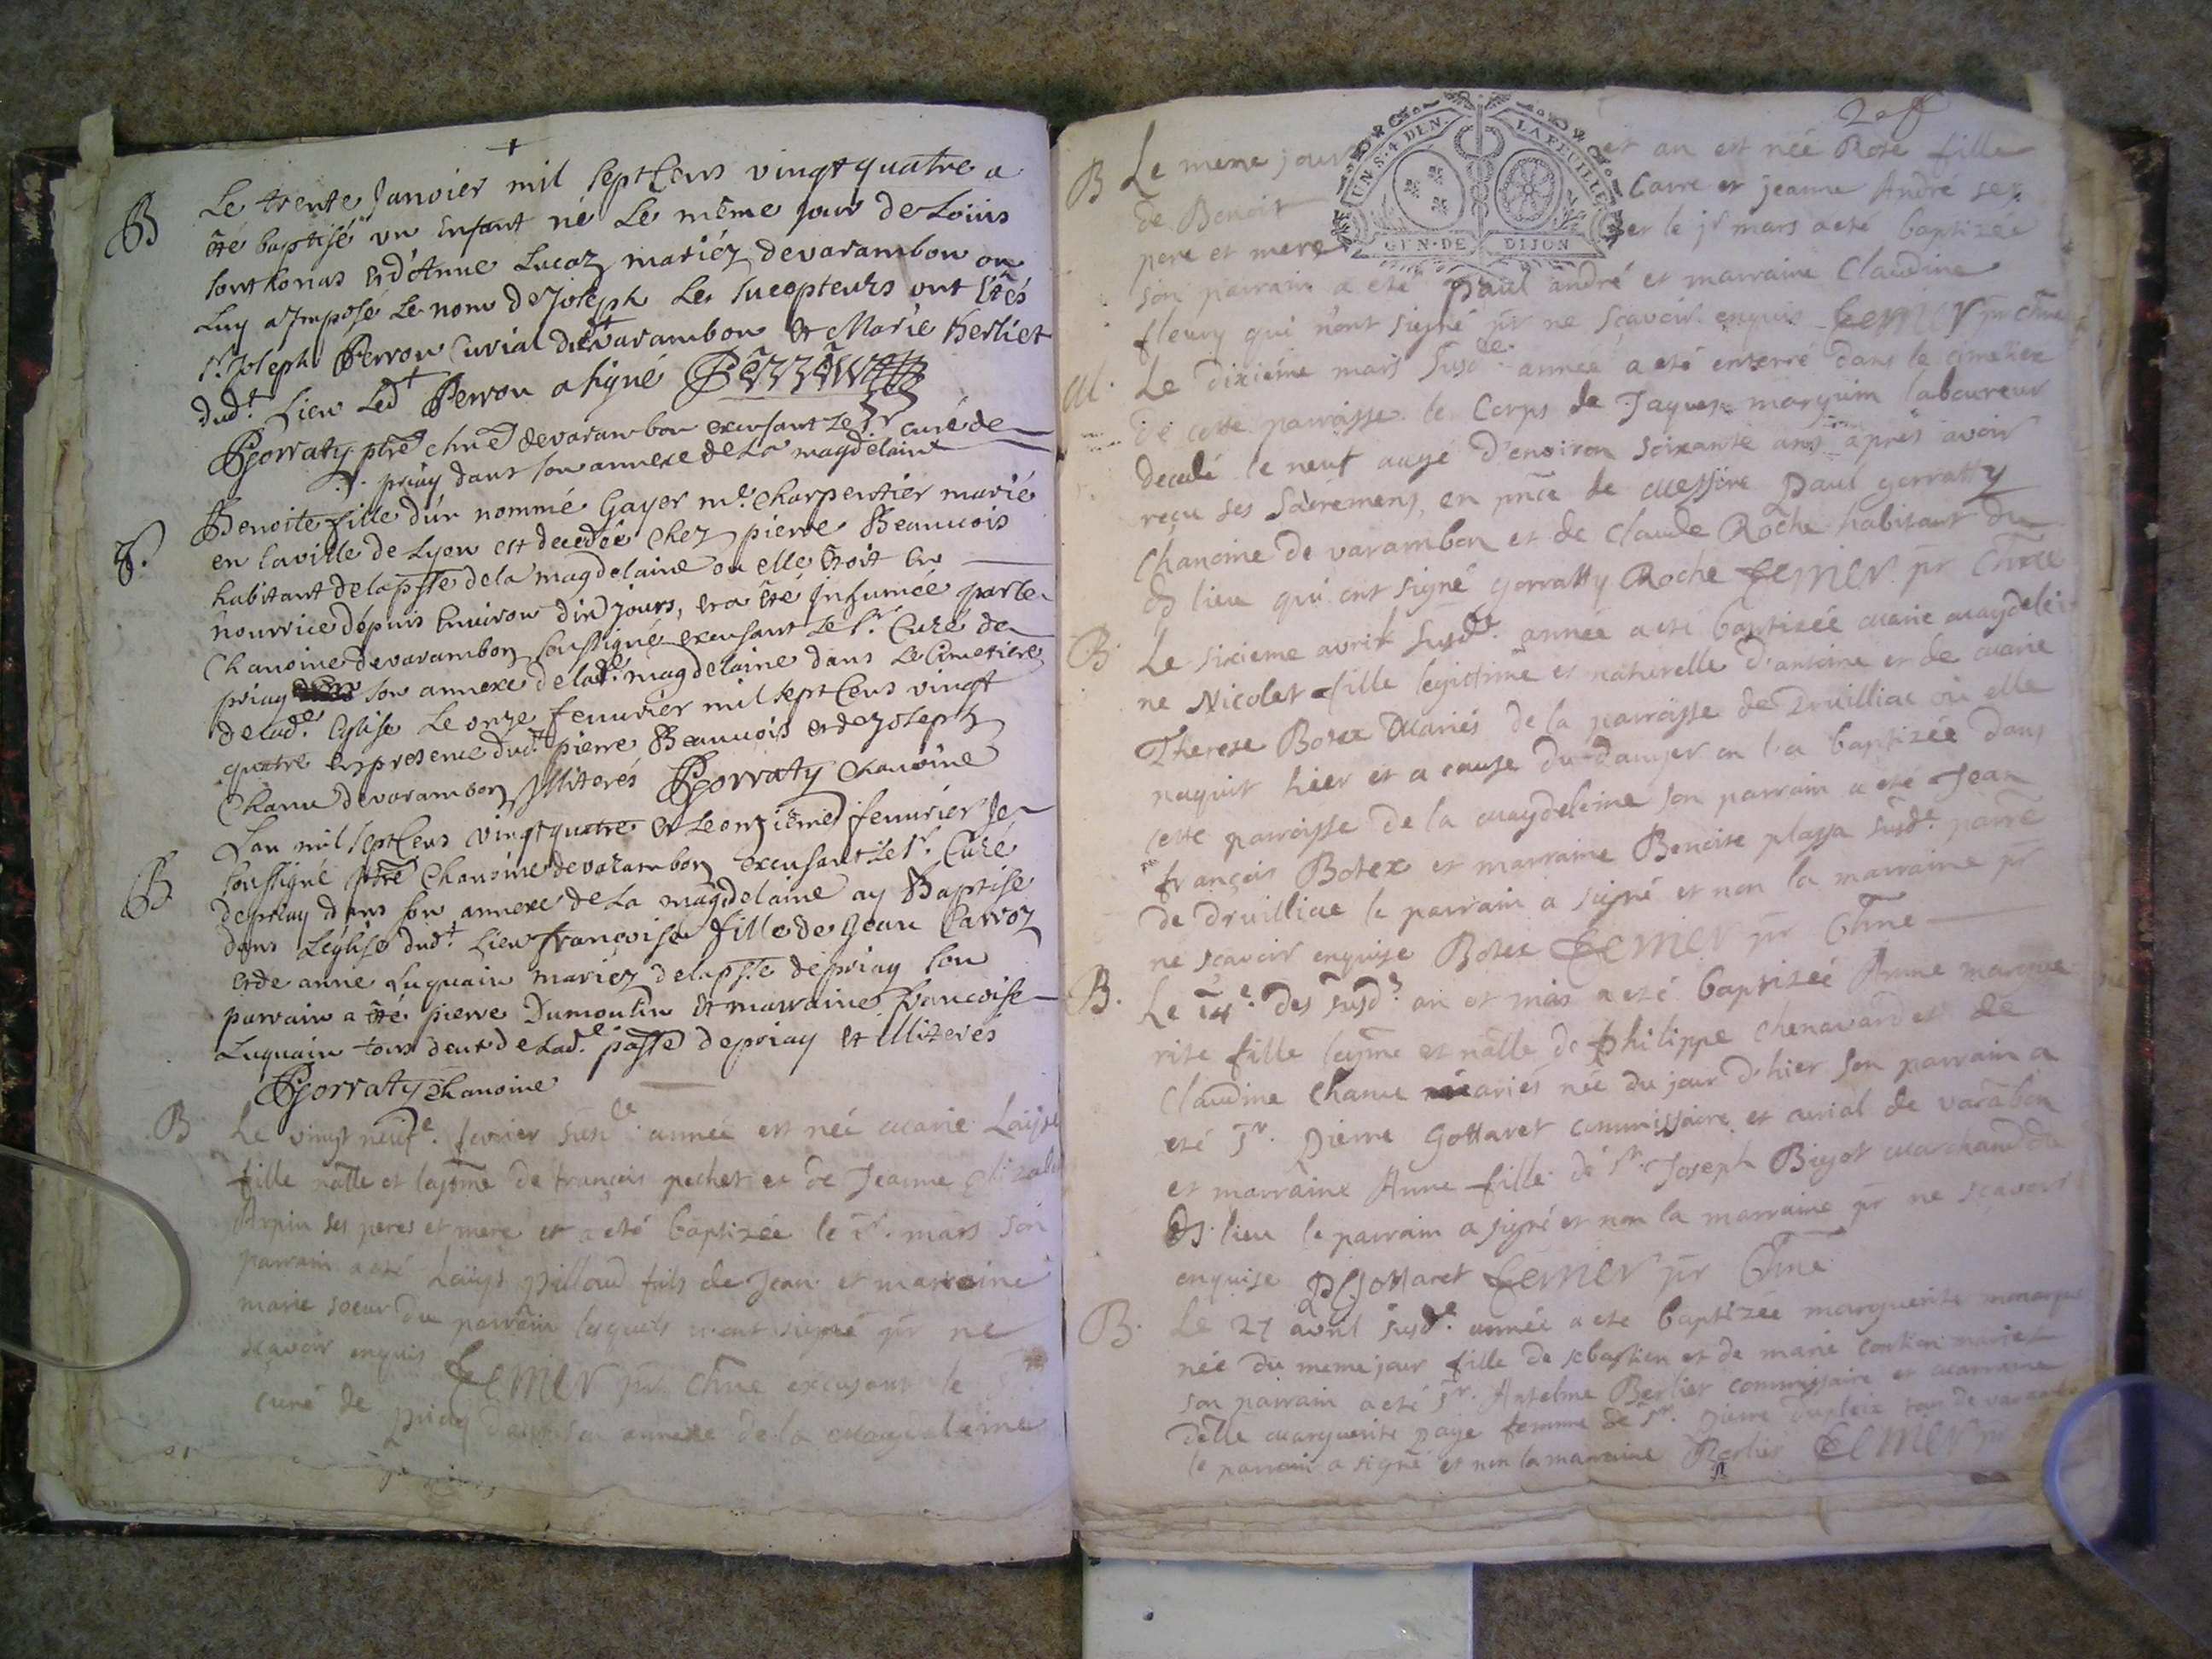 B Le trente Janvier mil sept Cens vingt quatre a
été baptisé un Enfant né Le même jour de Loüis
et d'Anne Lucaz mariéz de varambon on
Luy a Imposé Le nom de Joseph Les Sucepteurs ont Etés
Sr. Joseph Perron Curial dudt varambon et Marie Herliet
dudt. Lieu Ledt Perron a signé Perron
PGorraty ptre chne de varambon excusant Le Sr curé de
priay dans son annexe de La magdelaine
Benoite fille d'un nommé Gayer me. Charpentier marié
en la ville de Lyon est decedée Chez pierre Beauvois
habitant de la psse de la magdelaine ou elle Etoit En
nourrice depuis Environ dix jours, et a été Inhumée par le
Chanoine de varambon soussigné excusant Le Sr. Curé de
priay son annexe de lade. magdelaine dans Le Cimetiere
de lade. Eglise Le onze fevurier mil sept Cens vingt
quatre En presence dudt. pierre Beauvois et de Joseph
Chanu de varambon Illiterés PGorraty Chanoine
B Lan mil sept Cens vingt quatre et Le onzième fevurier Je
soussigné ptre Chanoine de varambon excusant Le Sr. Curé
de priay dans son annexe de La magdelaine ay Baptisé
dans L'eglise dudt. Lieu françoise fille de Jean Carroz
et de anne Luquain mariéz de la psse de priay son
parrain a été pierre Dumoulin et marraine francoise
Luquain tous deux de Lade. psse de priay et Illiterés
PGorraty Chanoine
B Le vingt neufe. fevrier susde. année est née marie Laijse
fille nalle et legme de françois pechet et de Jeanne
Arpin ses peres et mere et a eté baptizée le 1r. mars son
parrain a eté Laijse pilloud fils de Jean et marraine
marie soeur du parrain lesquels n'ont signé pr ne
scavoir enquis Ferrier pr chne excusant le Sr
curé de priay dans son annexe de la magdeleine
2e f
UN.S.4 DEN. LA FEUILLE
GEN. DE DIJON
B Le meme jour et an est née Rose fille
de Benoit Carre et jeanne André ses
pere et mere et le jr mars a eté baptizée
son parrain a eté paul andré et marraine Claudine
fleury qui n'ont signé pr ne scavoir enquis Ferrier pr chne
M. Le dixiéme mars susde. année a eté enterré dans le cimetier
de cette parroisse le Corps de Jaques marguin laboureur
decedé le neuf aagé d'environ soixante ans après avoir
reçu ses Sacremens, en pnce de messire Paul gorratty
Chanoine de varambon et de Claude Roche habitant du
dt lieu qui ont signé gorratty Roche Ferrier pr Chne
B. Le sixieme avril susdt. année a eté baptizée marie magdelei
ne Nicolet fille legittime et naturelle d'antoine et de marie
Therese Botex Mariés de la parroisse de Druilliac où elle
naquit hier et a cause du danger on l'a baptizée dans
cette parroisse de la magdeleine son parrain a eté Jean
françois Botex et marraine Benoite plassa susde. parre
de Druilliac le parrain a signé et non la marraine pr
ne scavoir enquise Botex Ferrier pr Chne
B. Le 14e. des susds. an et mois a eté baptizée Anne margue
rite fille legme et nalle de philippe Chenavard et de
Claudine Chanu mariés née du jour d'hier son parrain a
eté Sr. Pierre Gottaret commissaire et curial de varabon
et marraine Anne fille de Sr. Joseph Bigot marchand du
dt. lieu le parrain a signé et non la marraine pr ne scavoir
enquise PGottaret Ferrier pr Chne
B. Le 27 avril susde. année a eté baptizée marguerite
née du meme jour fille de sebastien et de marie mariés
son parrain a eté Sr. Antelme Berlier commissaire et marraine
delle marguerite page femme de Sr. pierre dupleix tous de
le parrain a signé et non la marraine Berlier Ferrier pr